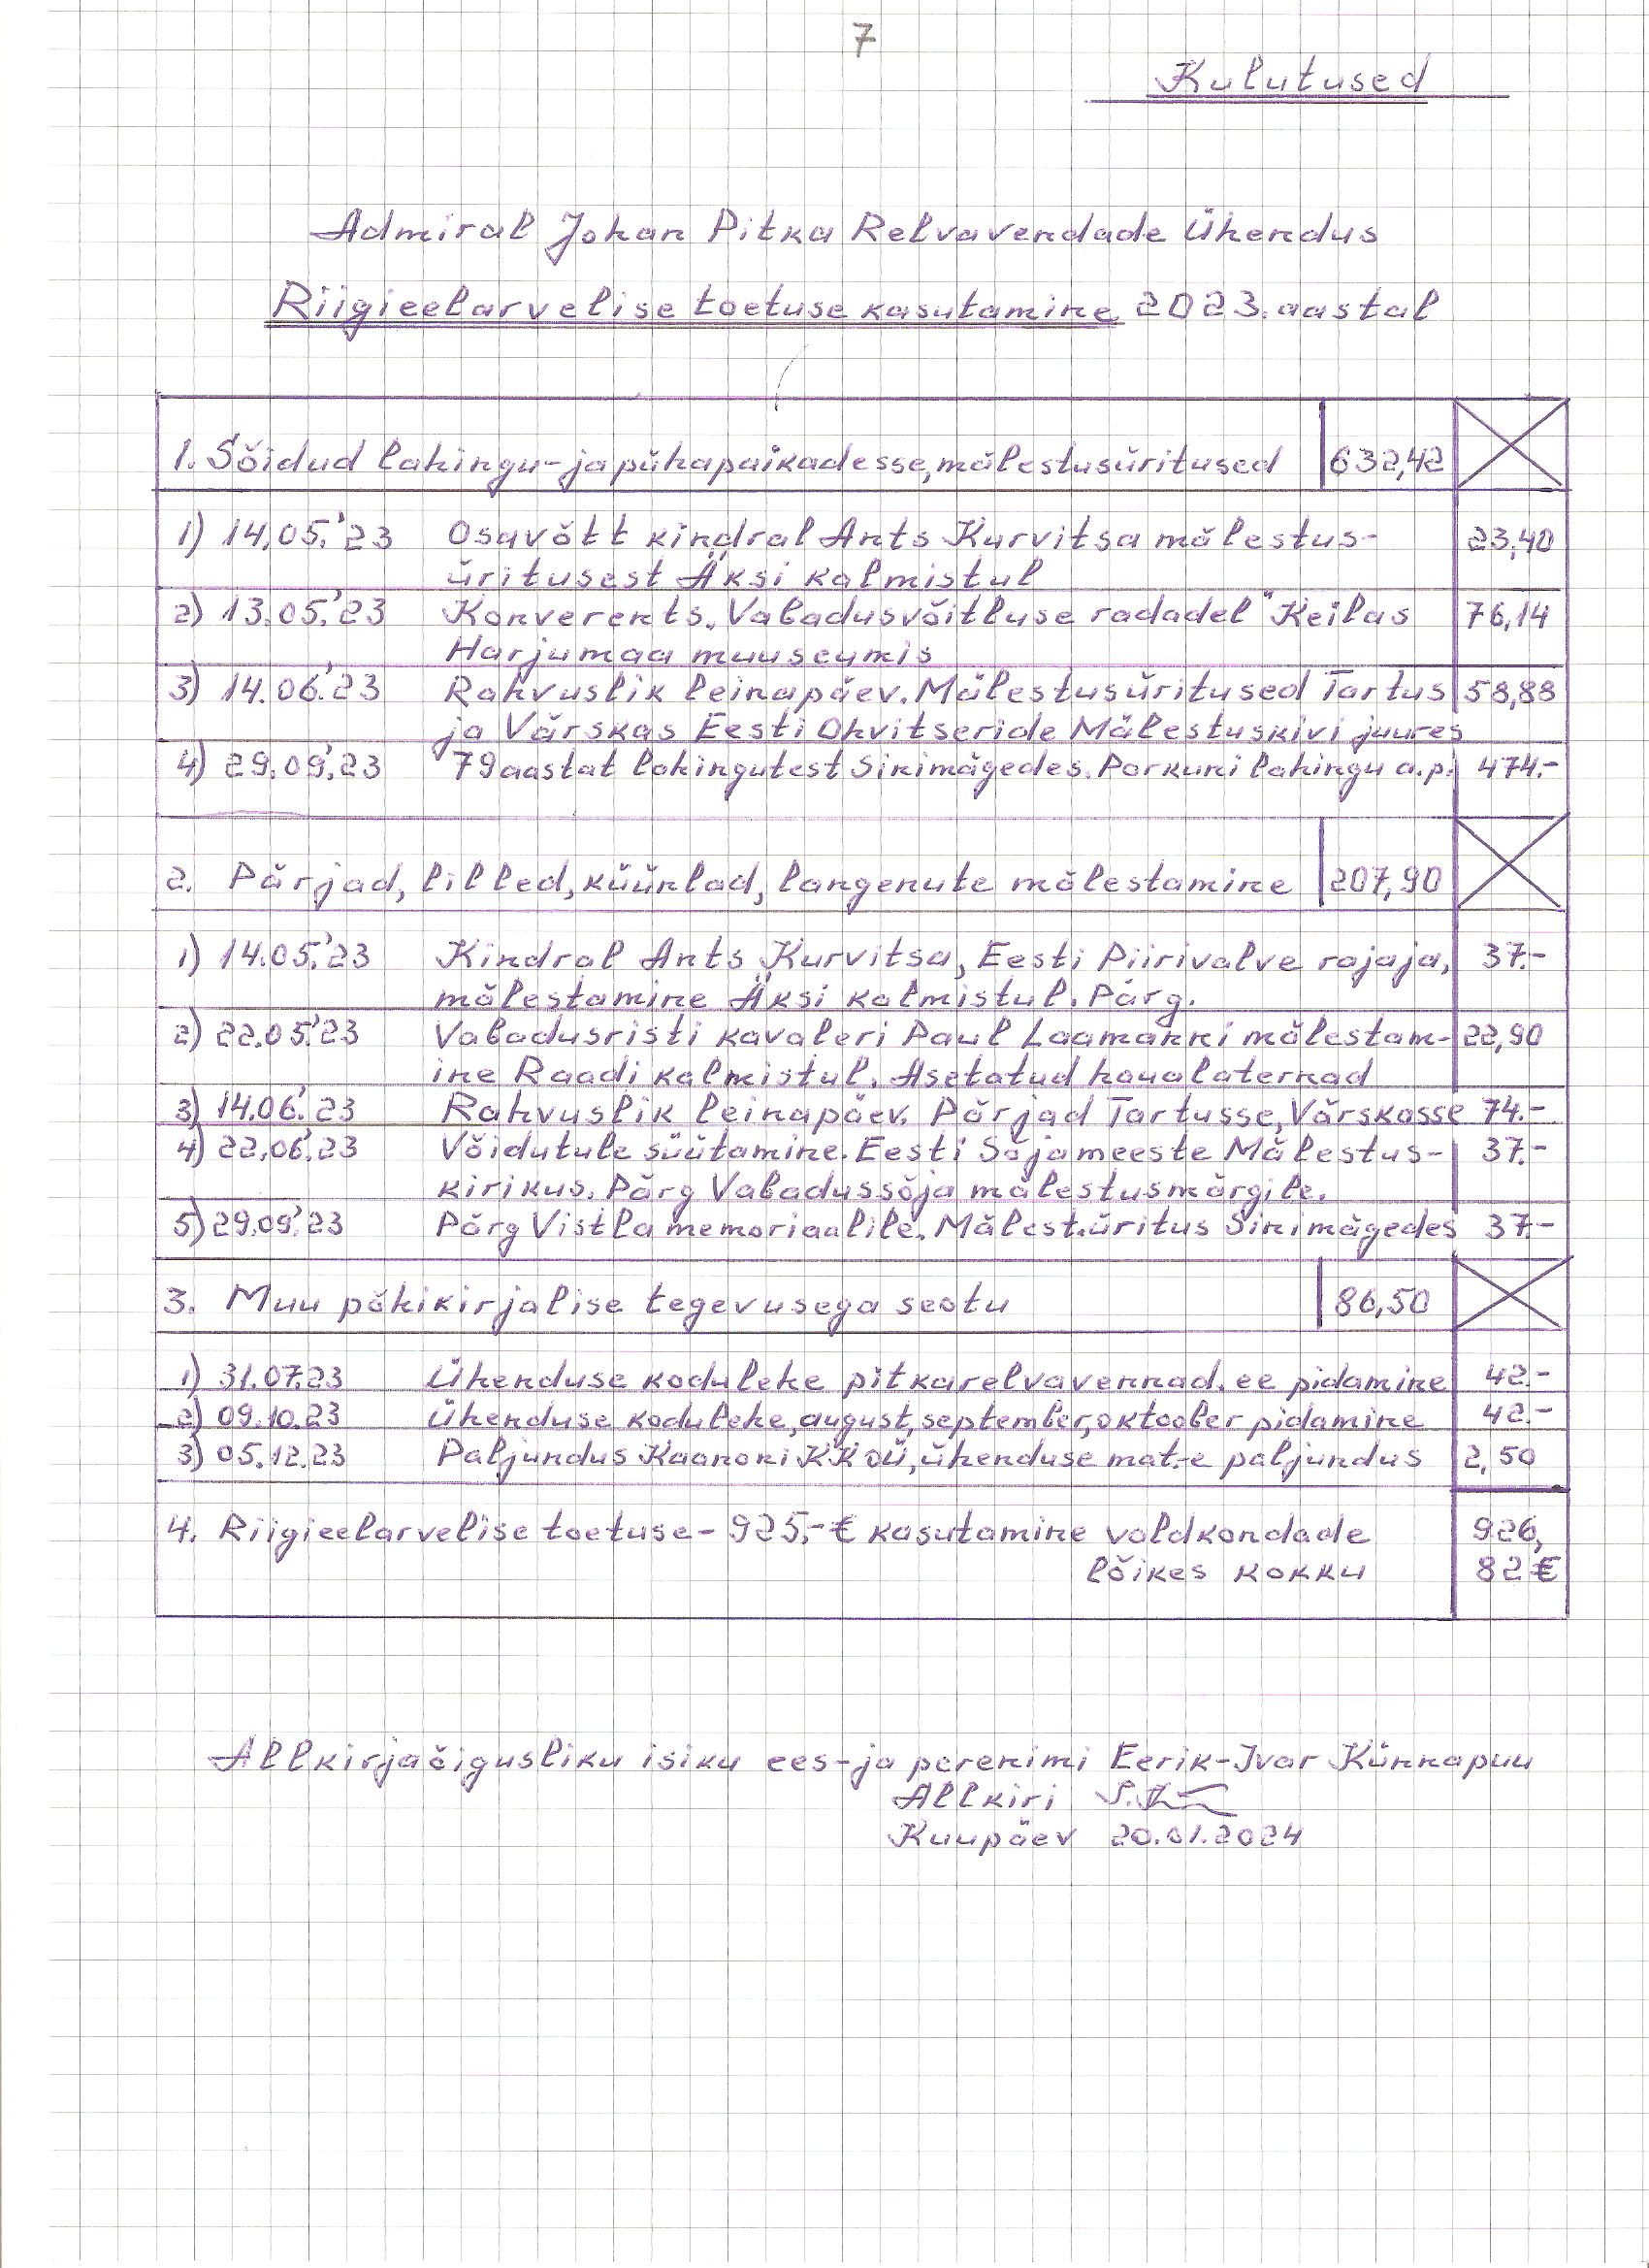 7
Kulutused
Admiral Johan Pitka Relvavendade Ühendus
Riigieelarvelise toetuse kasutamine 2023. aastal
1. Sõidud lahingu- ja pühapaikadesse, mälestusüritused 632,42
1) 14.05.'23 Osavõtt kindral Ants Kurvitsa mälestus- 23,40
üritusest Äksi kalmistul
2) 13.05.'23 Konverents „Vabadusvõitluse radadel" Keilas 76,14
Harjumaa muuseumis
3) 14.06.'23 Rahvuslik leinapäev. Mälestusüritused Tartus 58,88
ja Värskas Eesti Ohvitseride Mälestuskivi juures
4) 29.09.'23 79 aastat lahingutest Sinimägedes. Porkuni lahingu a.p. 474.-
2. Pärjad, lilled, küünlad, langenute mälestamine 207,90
1) 14.05.'23 Kindral Ants Kurvitsa, Eesti Piirivalve rajaja, 37.-
mälestamine Äksi kalmistul. Pärg.
2) 22.05.'23 Vabadusristi kavaleri Paul Laamanni mälestam- 22,90
ine Raadi kalmistul. Asetatud haualaternad
3) 14.06.'23 Rahvuslik leinapäev. Pärjad Tartusse, Värskasse 74.-
4) 22.06.'23 Võidutule süütamine. Eesti Sõjameeste Mälestus- 37.-
kirikus. Pärg Vabadussõja mälestusmärgile.
5) 29.09.'23 Pärg Vistla memoriaalile. Mälest.üritus Sinimägedes 37.-
3. Muu põhikirjalise tegevusega seotu 86,50
1) 31.07.23 Ühenduse koduleke pitkarelvavennad.ee pidamine 42.-
2) 09.10.23 Ühenduse koduleke, august, september, oktoober pidamine 42.-
3) 05.12.23 Paljundus Kaanoni KK OÜ, ühenduse mat.-e paljundus 2,50
4. Riigieelarvelise toetuse - 925,- € kasutamine valdkondade 926,
lõikes kokku 82 €
Allkirjaõigusliku isiku ees- ja perenimi Eerik-Ivar Künnapuu
Allkiri
Kuupäev 20.01.2024